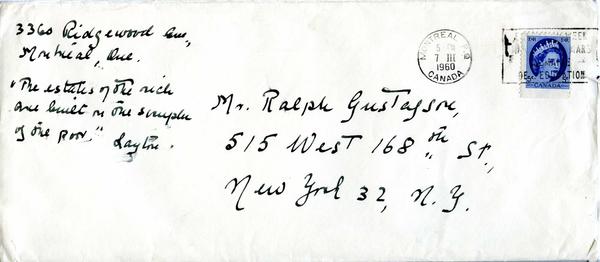 3360 Ridgewood Ave,
Montréal, Que.
"The estates of the rich
are built on the
of the poor." Layton.
MONTREAL P.Q.
5 PM
7 III
1960
CANADA
CANADA
Mr. Ralph Gustafson,
515 West 168th St.,
New York 32, N.Y.